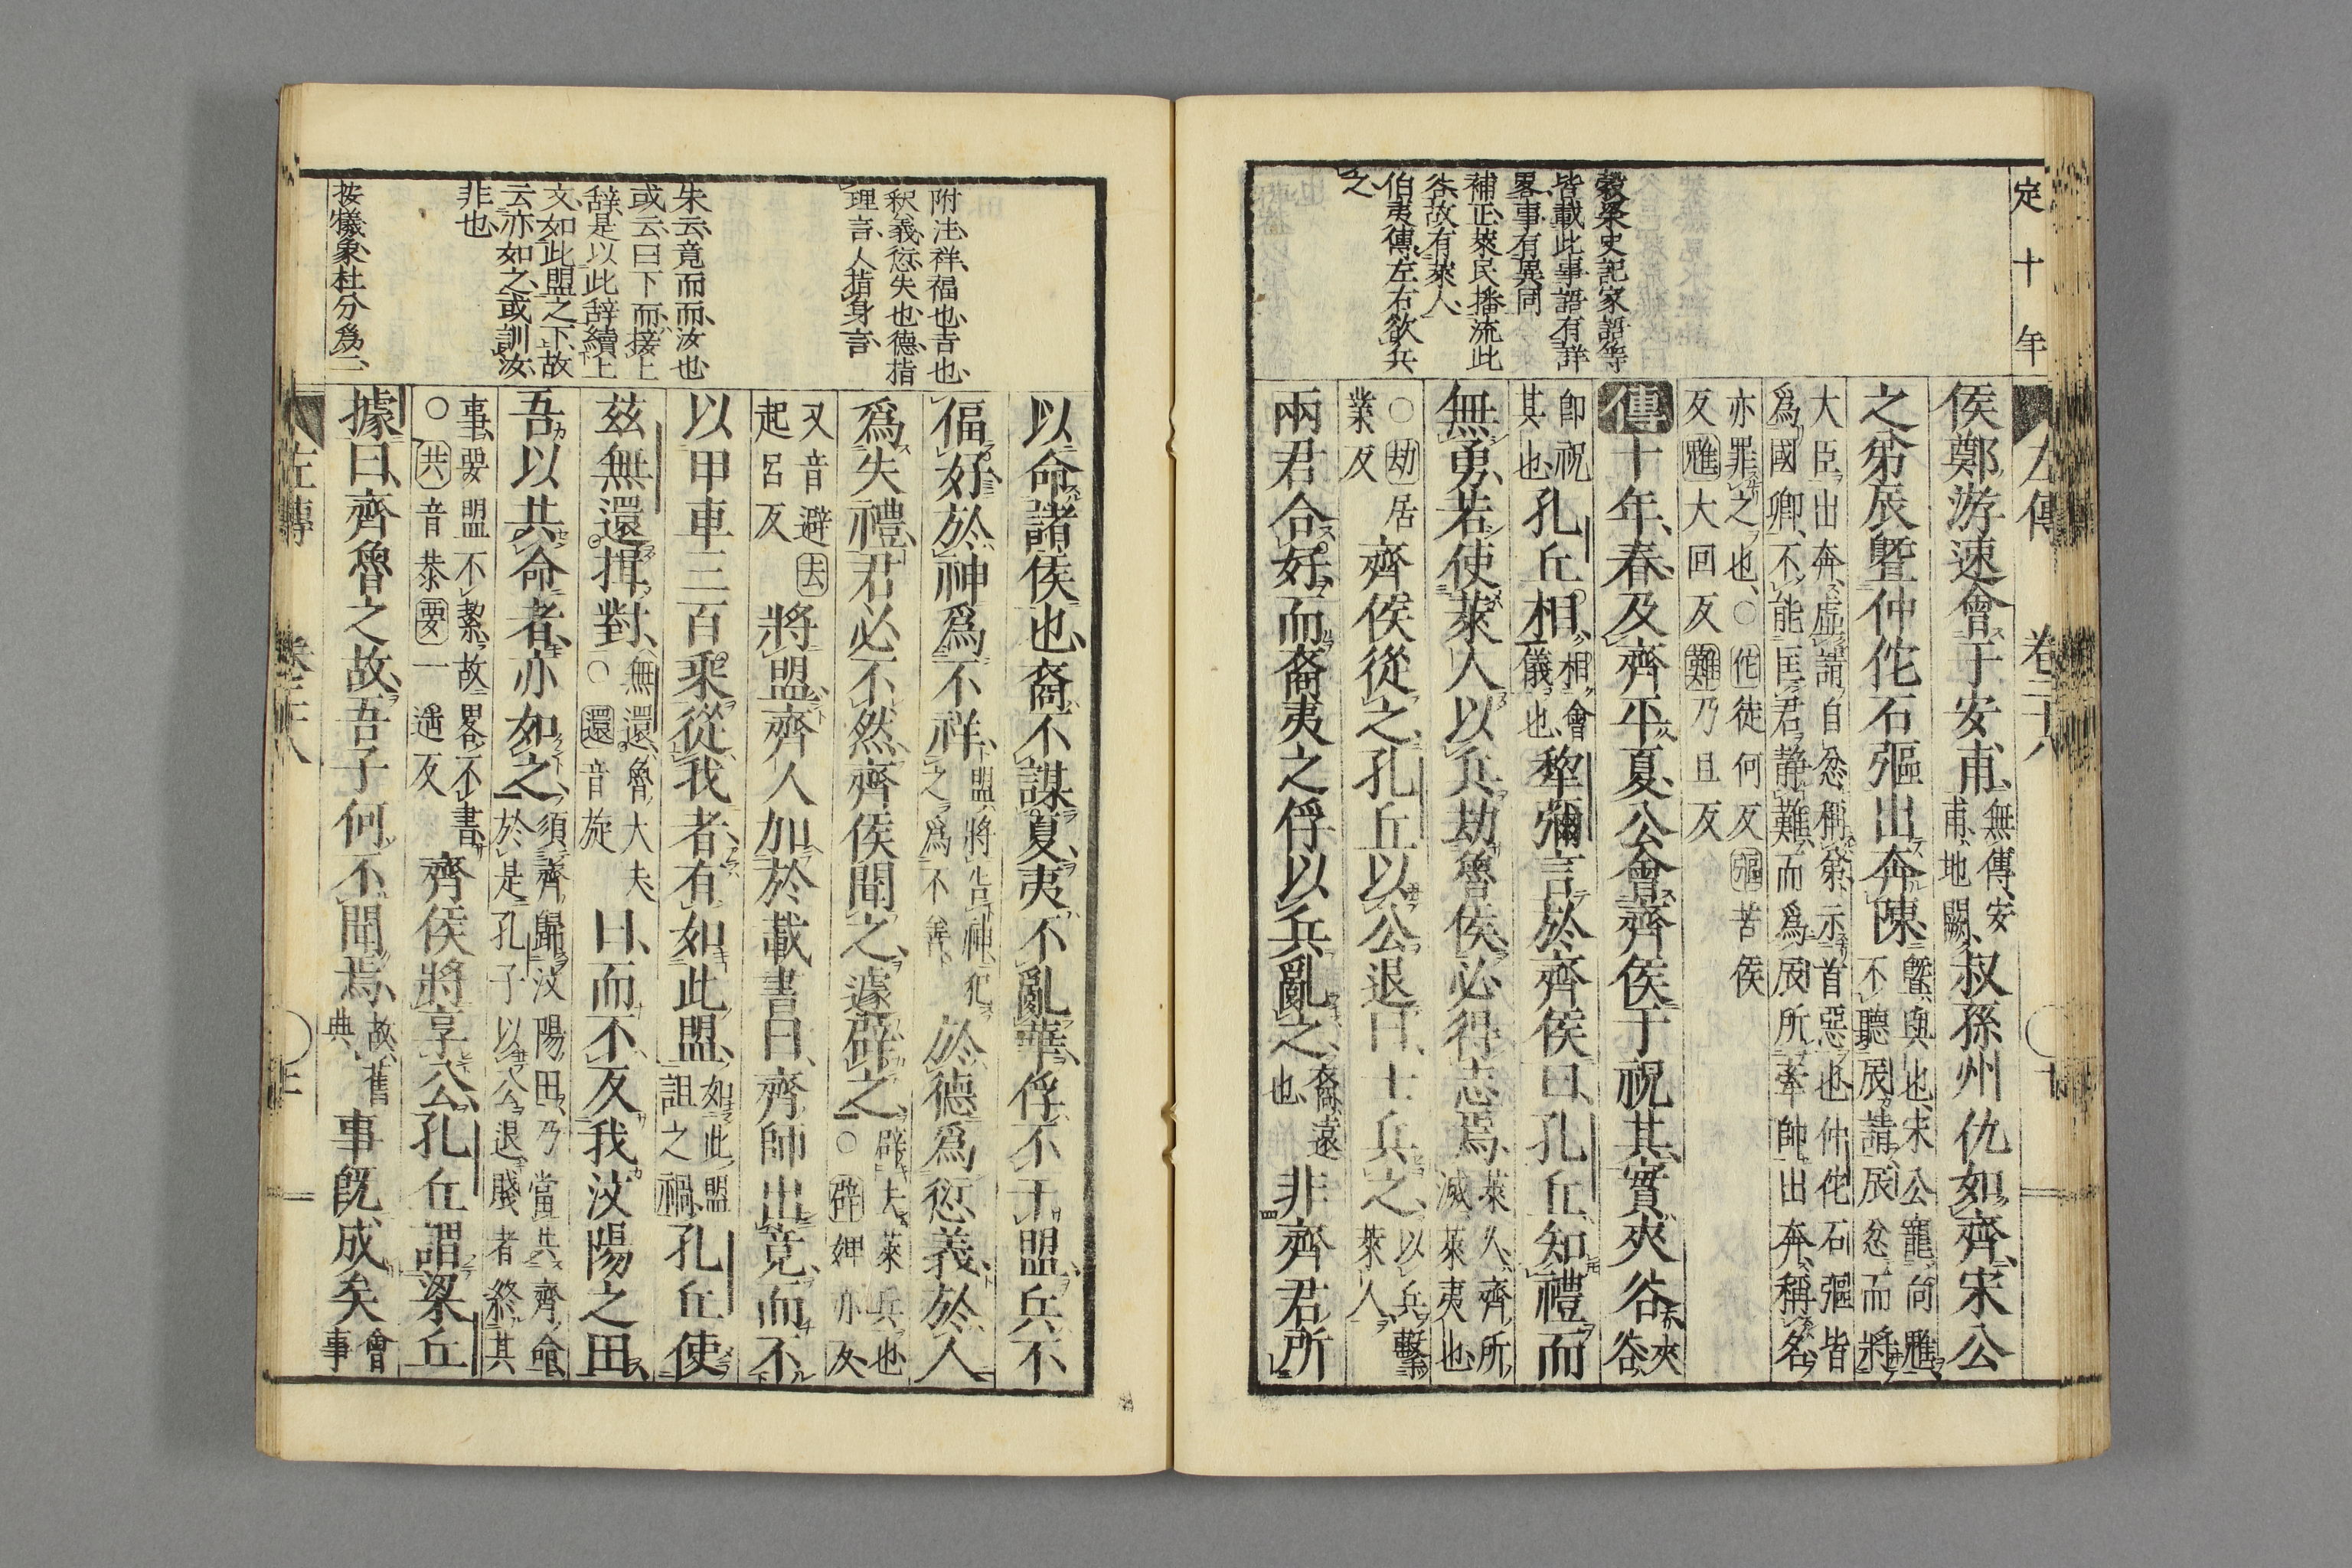 定十年
左傳 卷二十八
穀梁史記家語等
皆載此事語有詳
畧事有異同
補正萊民播流此
谷故有萊人
伯夷傳左右欲兵
之
侯鄭游速會于安甫、無傳、安甫、地闕、叔孫州仇如齊、宋公
之弟辰曁仲佗石彄出奔陳、曁與也、宋公寵向魋不聽辰請辰忿而將
大臣出奔、虛請自忿稱弟、示首惡也仲佗石彄皆
爲國卿、不能匡君静難而爲辰所牽帥出奔、稱名
亦罪之也、○佗徒何反彄苦侯
反魋大回反難乃旦反
傳十年、春及齊平夏公會齊侯于祝其、實夾谷夾谷
卽祝其也、孔丘相、相會儀也、犂彌言於齊侯曰、孔丘知禮而
無勇、若使萊人以兵劫魯侯、必得志焉、萊人、齊所滅萊夷也、
○劫居業反齊侯從之、孔丘以公退曰、士兵之、以兵擊萊人
兩君合好、而裔夷之俘以兵亂之、裔遠也、非齊君所
附注祥福也、吉也、
釈義愆失也、德指
理言、人指身言
朱云、竟而而、汝也
或云、曰下而接上
辞、是以此辞續上
文、如此盟之下、故
云亦如之、或訓汝
非也
按犧象、杜分爲二
以命諸侯也、裔不謀夏、夷不亂華、俘不干盟、兵不
偪好、於神爲不祥、盟將告神、犯之爲不善、於德爲愆義、於人
爲失禮、君必不然、齊侯聞之、遽辟之、辟去萊兵也○辟婢亦反、
又音避去起呂反將盟、齊人加於載書曰、齊師出竟、而不
以甲車三百乘從我者、有如此盟、如此盟詛之禍、孔丘使
茲無還揖對、無還、魯大夫○還音旋曰、而不反我汶陽之田、
吾以共命者、亦如之、須齊歸汶陽田、乃當共齊命、於是孔子以公退賤者終其
事、要盟不絜故畧不書、○共音恭要一遥反齊侯將享公、孔丘謂梁丘
據曰、齊魯之故、吾子何不聞焉、故、舊典事旣成矣會事
左傳 卷二十八